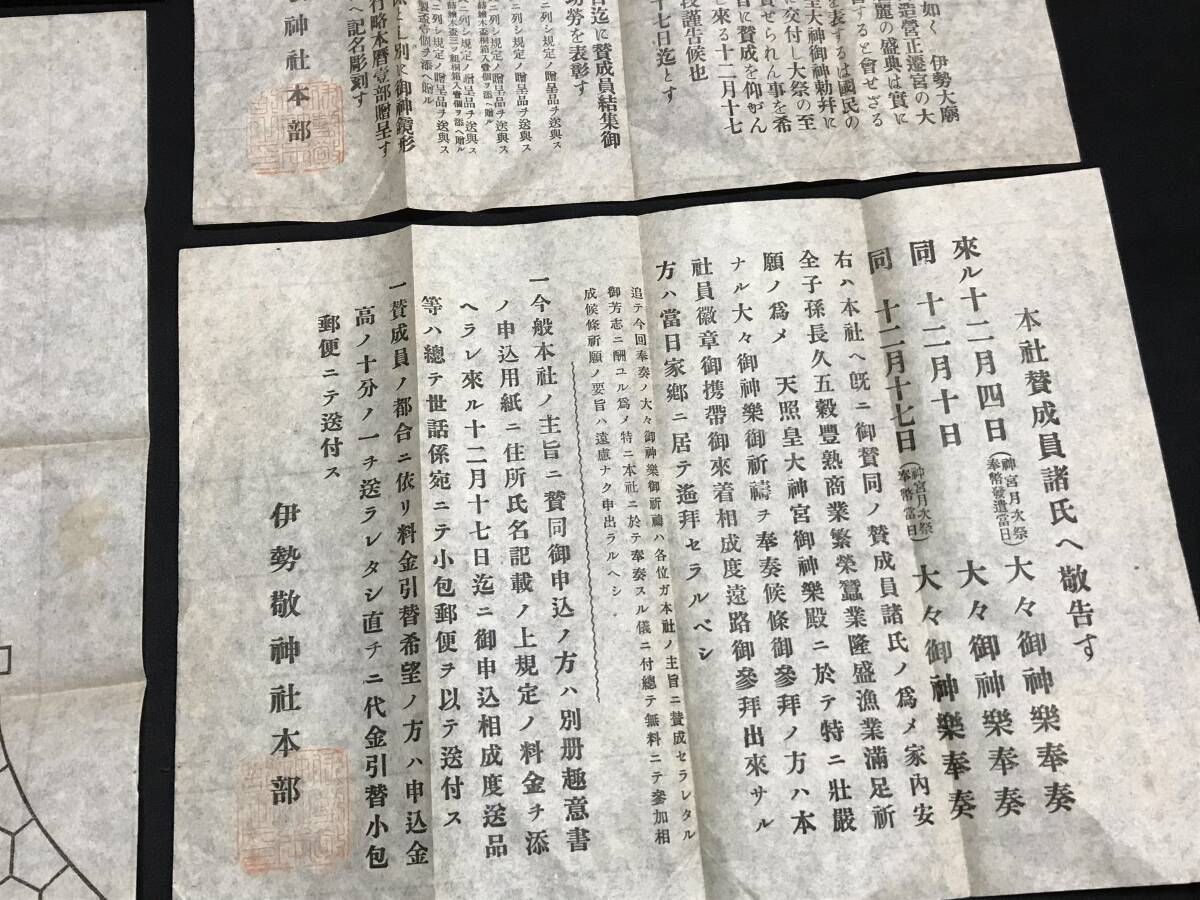 如く　伊勢大廟
造營正遷宮の大
麗の盛典は實に
すると會せざる
を表するは國民の
に交付し大祭の至
皇大神御神勅幷に
賛せられん事を希
に賛成を仰がん
來る十二月十七
段謹告候也
十七日迄とす
日迄に賛成員結集御
功勞を表彰す
ニ列シ規定ノ贈呈品チ送與ス
ニ列シ規定ノ贈呈品チ送與ス
ニ列シ規定ノ贈呈品チ送與ス
とし別に御神鏡形
行略本曆壹部贈呈す
へ記名彫刻す
神社本部
本社賛成員諸氏へ敬告す
來ル十二月四日（神宮月次祭奉幣發遣當日）大々御神樂奉奏
同　十二月十日　大々御神樂奉奏
同　十二月十七日（神宮月次祭奉幣當日）大々御神樂奉奏
右ハ本社へ旣ニ御賛同ノ賛成員諸氏ノ爲メ家內安
全子孫長久五穀豐熟商業繁榮蠶業隆盛漁業滿足祈
願ノ爲メ　天照皇大神宮御神樂殿ニ於テ特ニ壯嚴
ナル大々御神樂御祈禱チ奉奏候條御參拜ノ方ハ本
社員徽章御携帶御來着相成度遠路御參拜出來サル
方ハ當日家鄕ニ居テ遙拜セラルベシ
追テ今回奉奏ノ大々御神樂御祈禱ハ各位ガ本社ノ主旨ニ賛成セラレタル
御芳志ニ酬ユル爲メ特ニ本社ニ於テ奉奏スル儀ニ付總テ無料ニテ參加相
成候條祈願ノ要旨ハ遠慮ナク申出ラルヘシ
一今般本社ノ主旨ニ賛同御申込ノ方ハ別册趣意書
ノ申込用紙ニ住所氏名記載ノ上規定ノ料金チ添
ヘラレ來ル十二月十七日迄ニ御申込相成度送品
等ハ總テ世話係宛ニテ小包郵便ヲ以テ送付ス
一賛成員ノ都合ニ依リ料金引替希望ノ方ハ申込金
高ノ十分ノ一チ送ラレタシ直チニ代金引替小包
郵便ニテ送付ス
伊勢敬神社本部